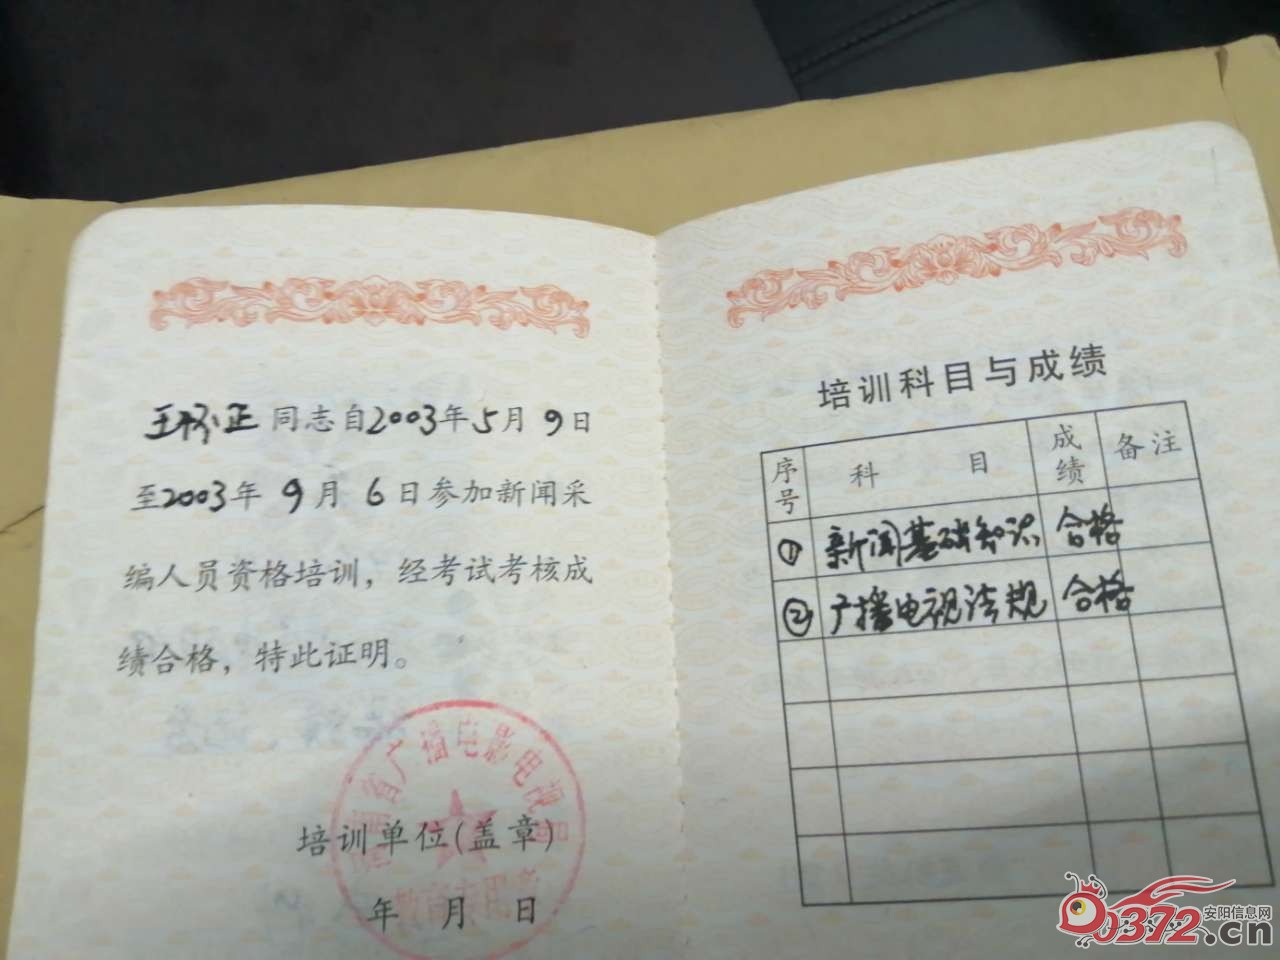 王怀正同志自2003年5月9日
至2003年9月6日参加新闻采
编人员资格培训，经考试考核成
绩合格，特此证明。
省广播电影电视局
培训单位(盖章)
年 月 日
培训科目与成绩
序号 科 目 成绩 备注
① 新闻基础知识 合格
② 广播电视法规 合格
0372.cn
安阳信息网